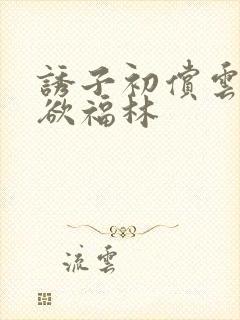 誘子初償雲
欲福林
流雲